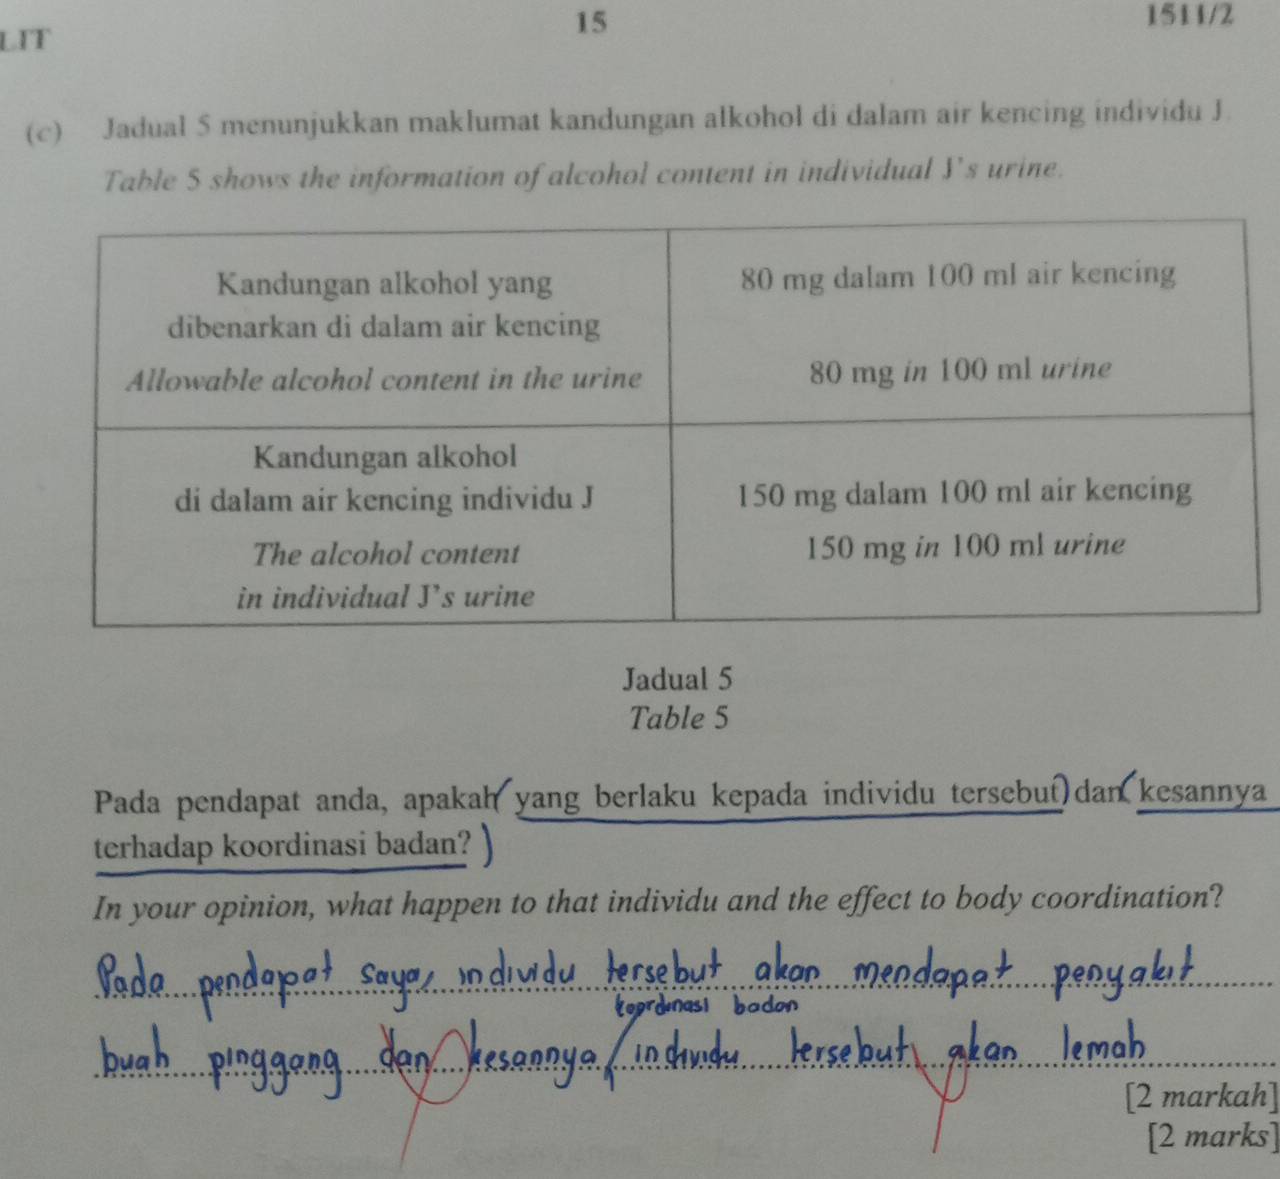 LIT
15
1511/2
(c) Jadual 5 menunjukkan maklumat kandungan alkohol di dalam air kencing individu J.
Table 5 shows the information of alcohol content in individual J's urine.
Kandungan alkohol yang
dibenarkan di dalam air kencing
Allowable alcohol content in the urine
80 mg dalam 100 ml air kencing
80 mg in 100 ml urine
Kandungan alkohol
di dalam air kencing individu J
The alcohol content
in individual J's urine
150 mg dalam 100 ml air kencing
150 mg in 100 ml urine
Jadual 5
Table 5
Pada pendapat anda, apakah (yang berlaku kepada individu tersebut) dan (kesannya
terhadap koordinasi badan?)
In your opinion, what happen to that individu and the effect to body coordination?
Pada pendapat saya, individu tersebut akan mendapat penyakit
koordinasi badan
buah pinggang dan kesannya individu tersebut akan lemah
[2 markah]
[2 marks]